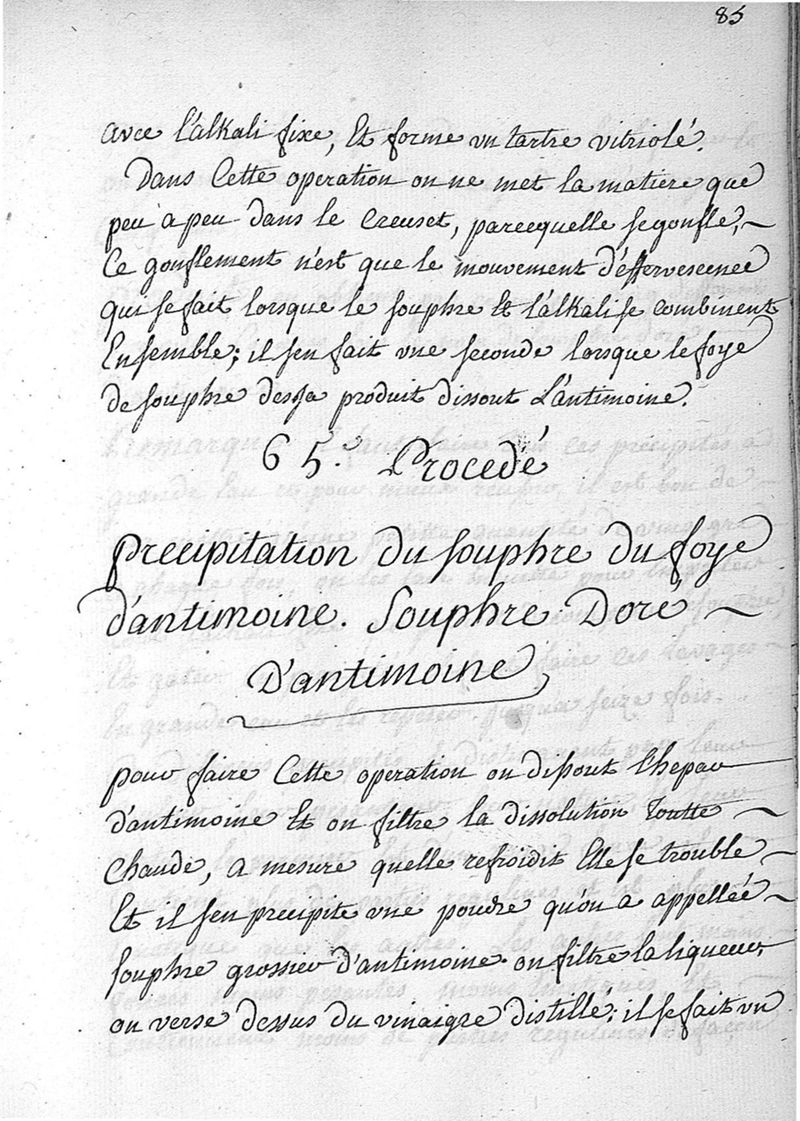 85
avec l'alkali fixe, Et forme vn tartre vitriolé.
Dans Cette operation on ne met la matiere que
peu a peu dans le Creuset, parcequelle se gonfle,
Ce gonflement n'est que le mouvement d'éffervescence
qui se fait lorsque le souphre Et l'alkali se combinent
Ensemble; il s'en fait vne seconde lorsque le foye
de souphre desja produit dissout L'antimoine.
65.e Procedé
Precipitation du souphre du foye
d'antimoine. Souphre Doré
D'antimoine
pour faire Cette operation on dissout l'hepar
d'antimoine Et on filtre la dissolution Toutte
Chaude, a mesure quelle refroidit Elle se trouble
Et il s'en precipite vne poudre qu'on a appellée
souphre grossier d'antimoine. on filtre la liqueur,
on verse dessus du vinaigre distillé; il se fait vn